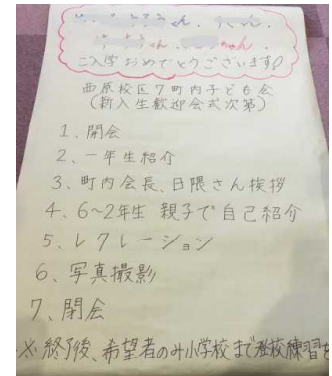 ちゃん
ご入学おめでとうございます!
西原校区7町内子ども会
(新入生歓迎会式次第)
1、開会
2、一年生紹介
3、町内会長、日隈さん挨拶
4、6~2年生 親子で自己紹介
5、レクレーション
6、写真撮影
7、閉会
※終了後、希望者のみ小学校まで登校練習を